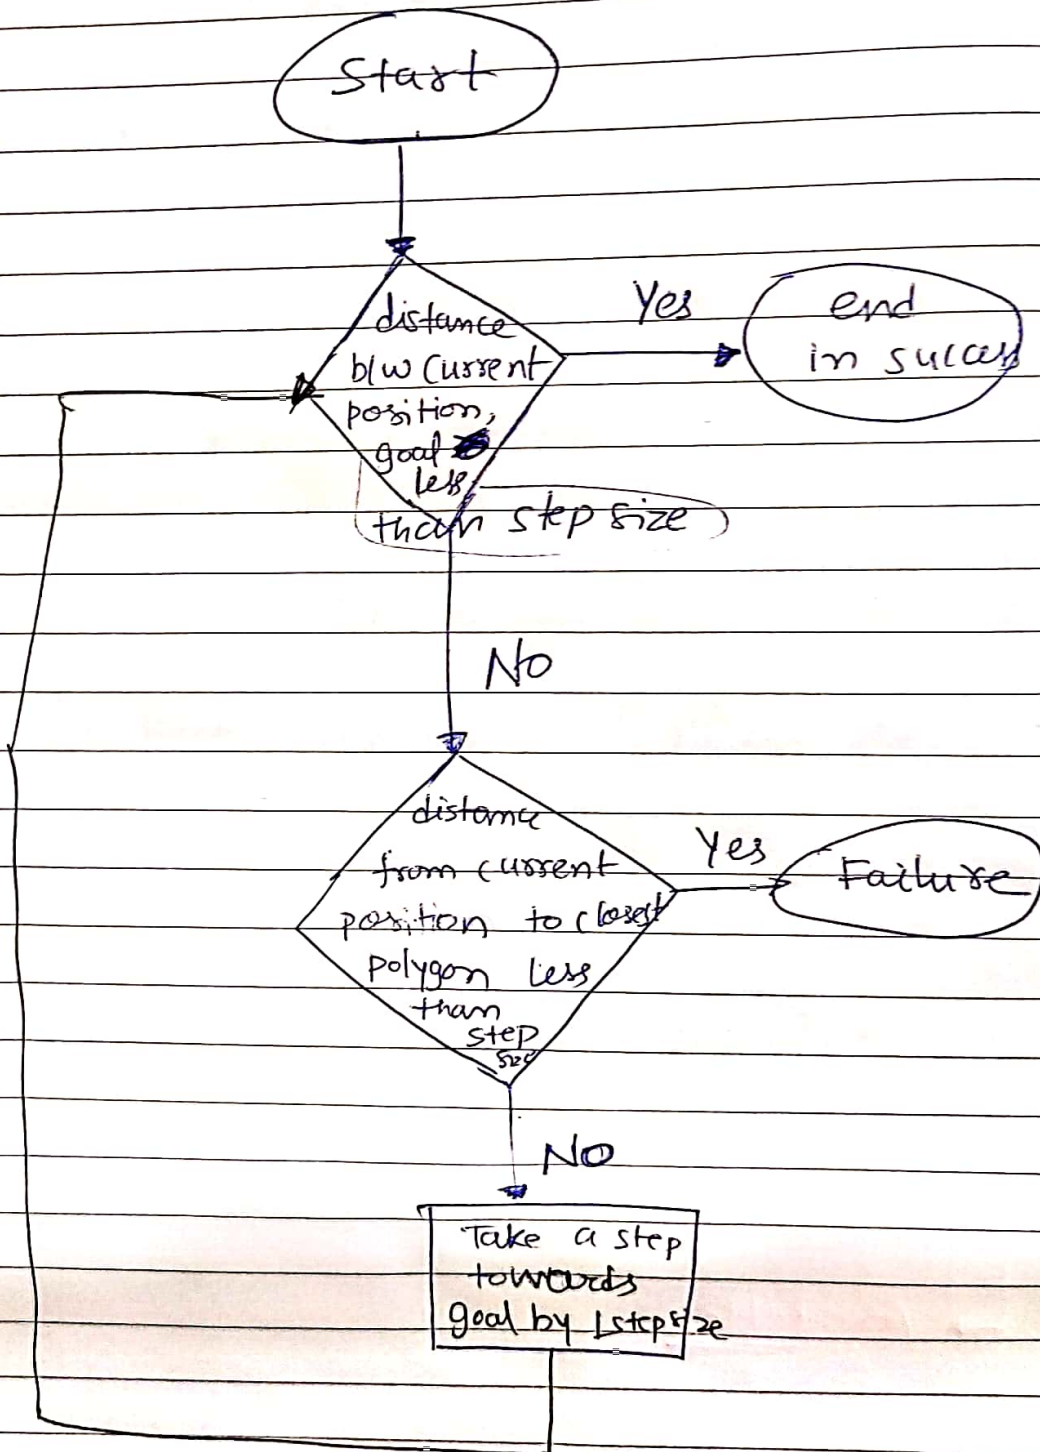 Start
distance
b/w current
position,
goal
less
than step size
Yes
end
in success
No
distance
from current
position to closest
polygon less
than
step
size
Yes
Failure
No
Take a step
towards
goal by 1 stepsize